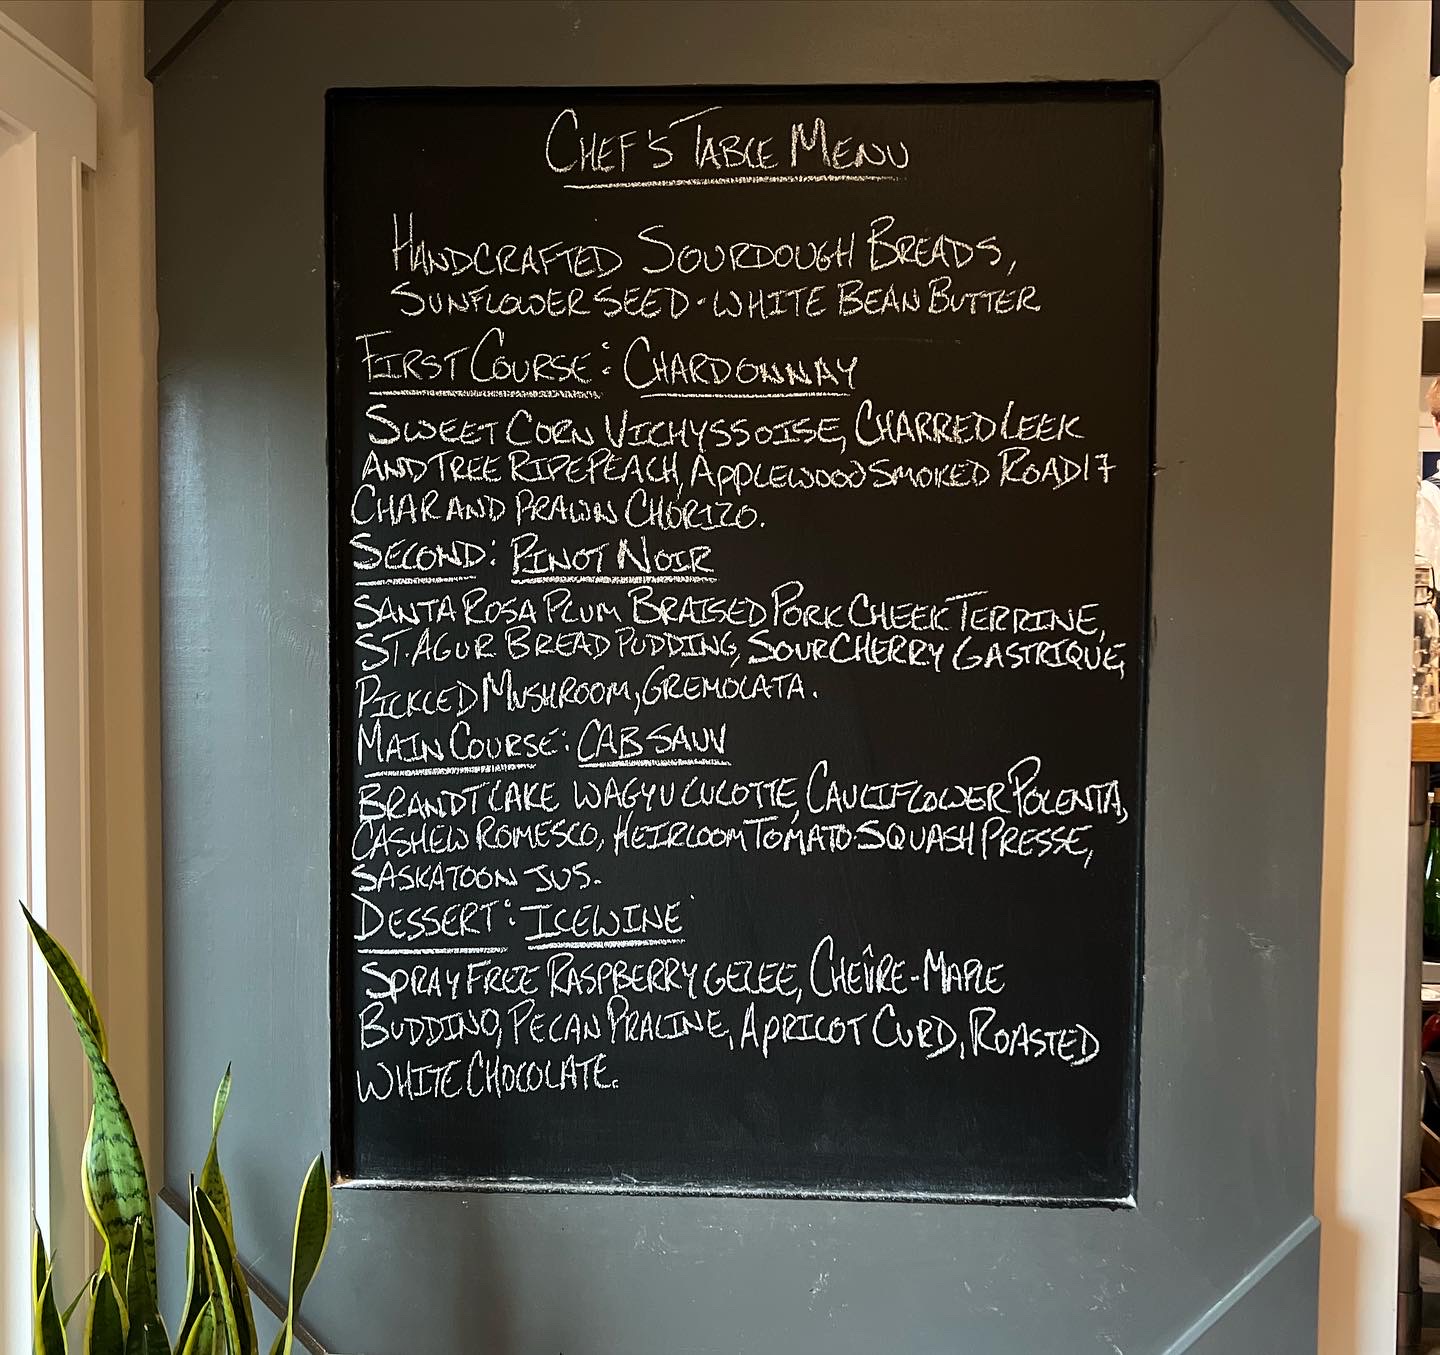 CHEF'S TABLE MENU
HANDCRAFTED SOURDOUGH BREADS,
SUNFLOWER SEED-WHITE BEAN BUTTER
FIRST COURSE: CHARDONNAY
SWEET CORN VICHYSSOISE, CHARRED LEEK
AND TREE RIPE PEACH, APPLEWOOD SMOKED ROAD 17
CHAR AND PRAWN CHORIZO.
SECOND: PINOT NOIR
SANTA ROSA PLUM BRAISED PORK CHEEK TERRINE,
ST. AGUR BREAD PUDDING, SOUR CHERRY GASTRIQUE,
PICKLED MUSHROOM, GREMOLATA.
MAIN COURSE: CAB SAUV
BRANDT LAKE WAGYU CULOTTE, CAULIFLOWER POLENTA,
CASHEW ROMESCO, HEIRLOOM TOMATO-SQUASH PRESSE,
SASKATOON JUS.
DESSERT: ICEWINE
SPRAY FREE RASPBERRY GELEE, CHEVRE-MAPLE
BUDDINO, PECAN PRALINE, APRICOT CURD, ROASTED
WHITE CHOCOLATE.